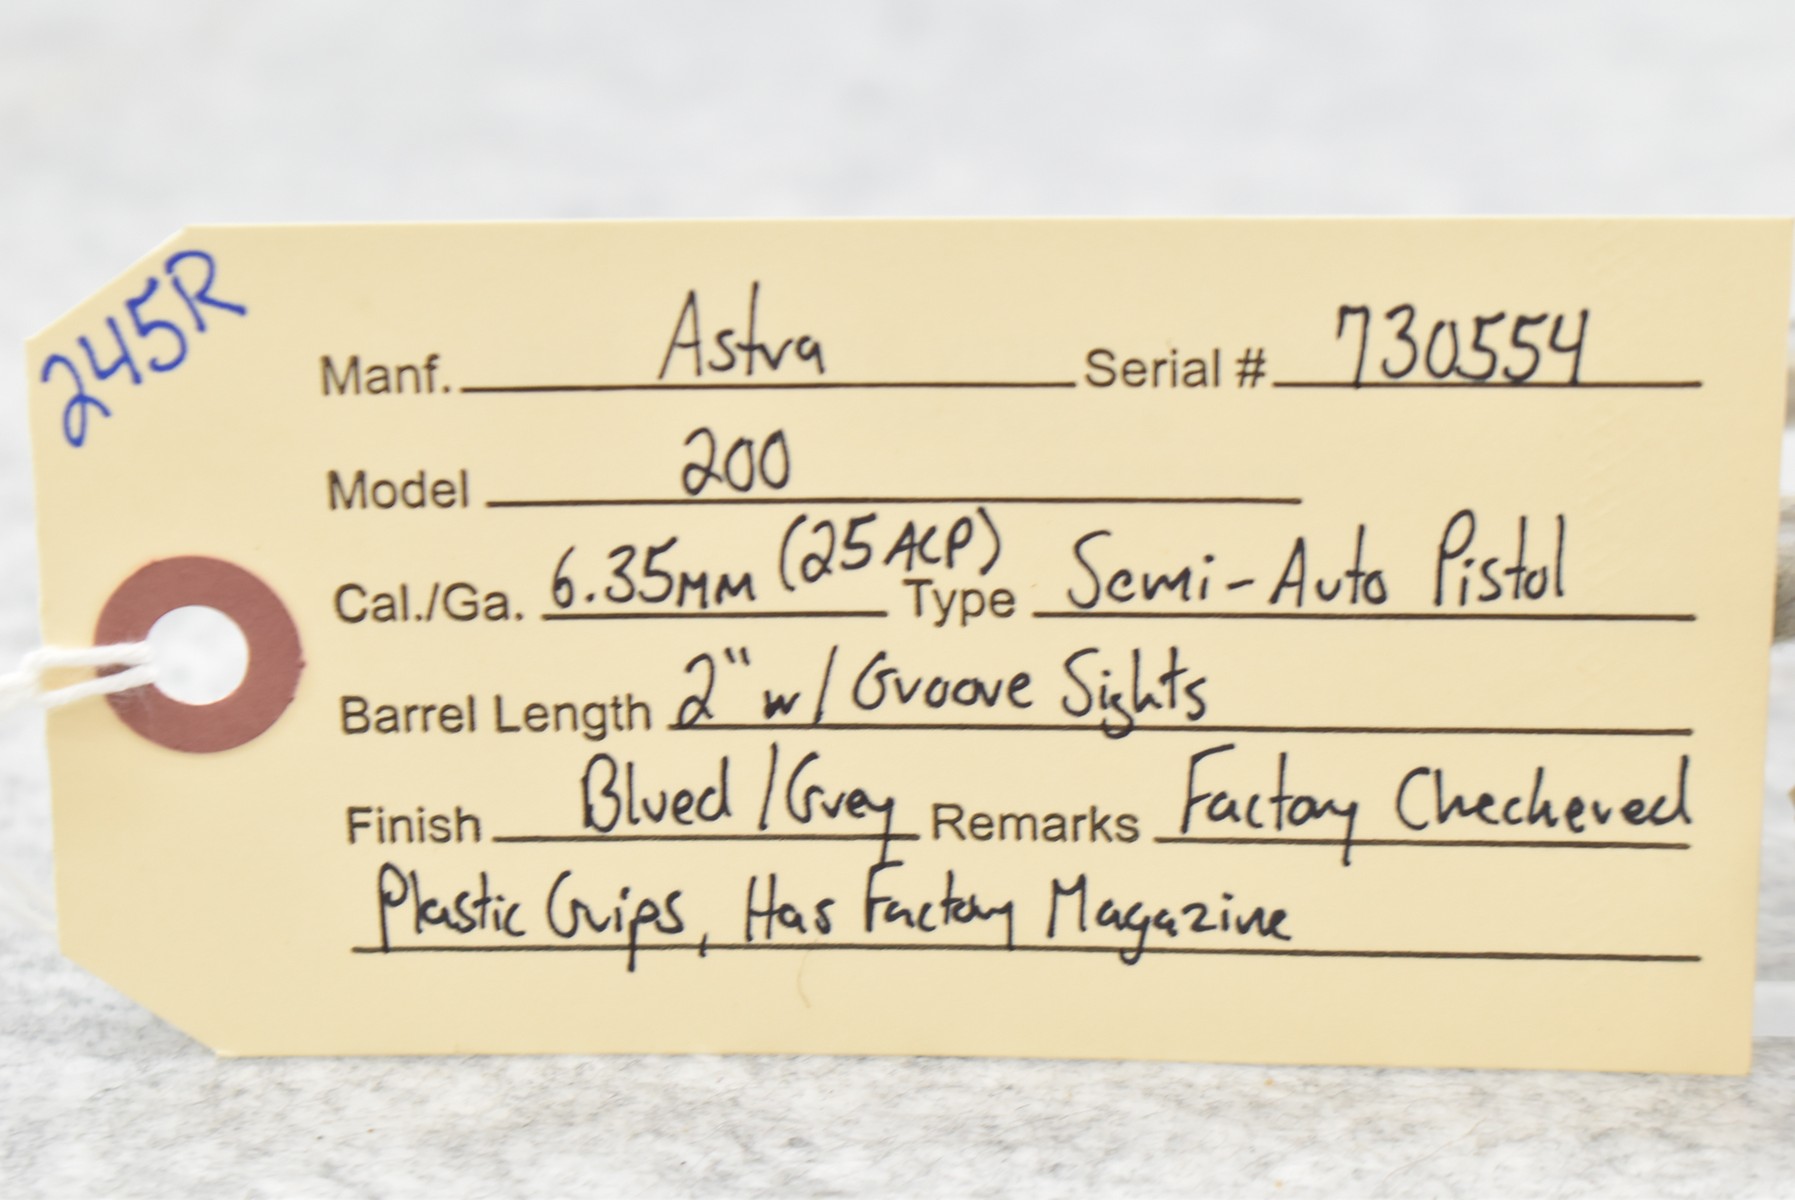 245R
Manf. Astra Serial # 730554
Model 200
Cal./Ga. 6.35MM (25 ACP) Type Semi-Auto Pistol
Barrel Length 2" w/ Groove Sights
Finish Blued / Grey Remarks Factory Checkered
Plastic Grips, Has Factory Magazine